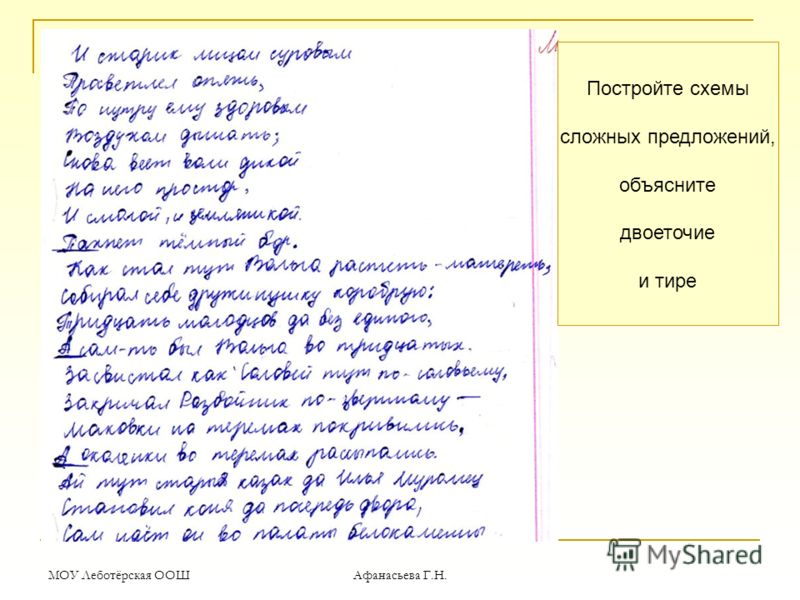 И старик лицом суровым
Просветлел опять,
По нутру ему здоровым
Воздухом дышать;
Снова веет воли дикой
На него простор,
И смолой, и земляникой.
Пахнет тёмный бор.
Как стал тут Вольга растеть-матереть,
Собирал себе дружинушку хоробрую:
Тридцать молодцов да без единого,
А сам-то был Вольга во тридцатых.
Засвистал как Соловей тут по-соловьему,
Закричал Разбойник по-звериному —
Маковки на теремах покривились,
А околенки во теремах рассыпались.
Ай тут старый казак да Илья Муромец
Становил коня да посередь двора,
Сам идёт он во палаты белокаменны
Постройте схемы
сложных предложений,
объясните
двоеточие
и тире
МОУ Леботёрская ООШ
Афанасьева Г.Н.
MyShared